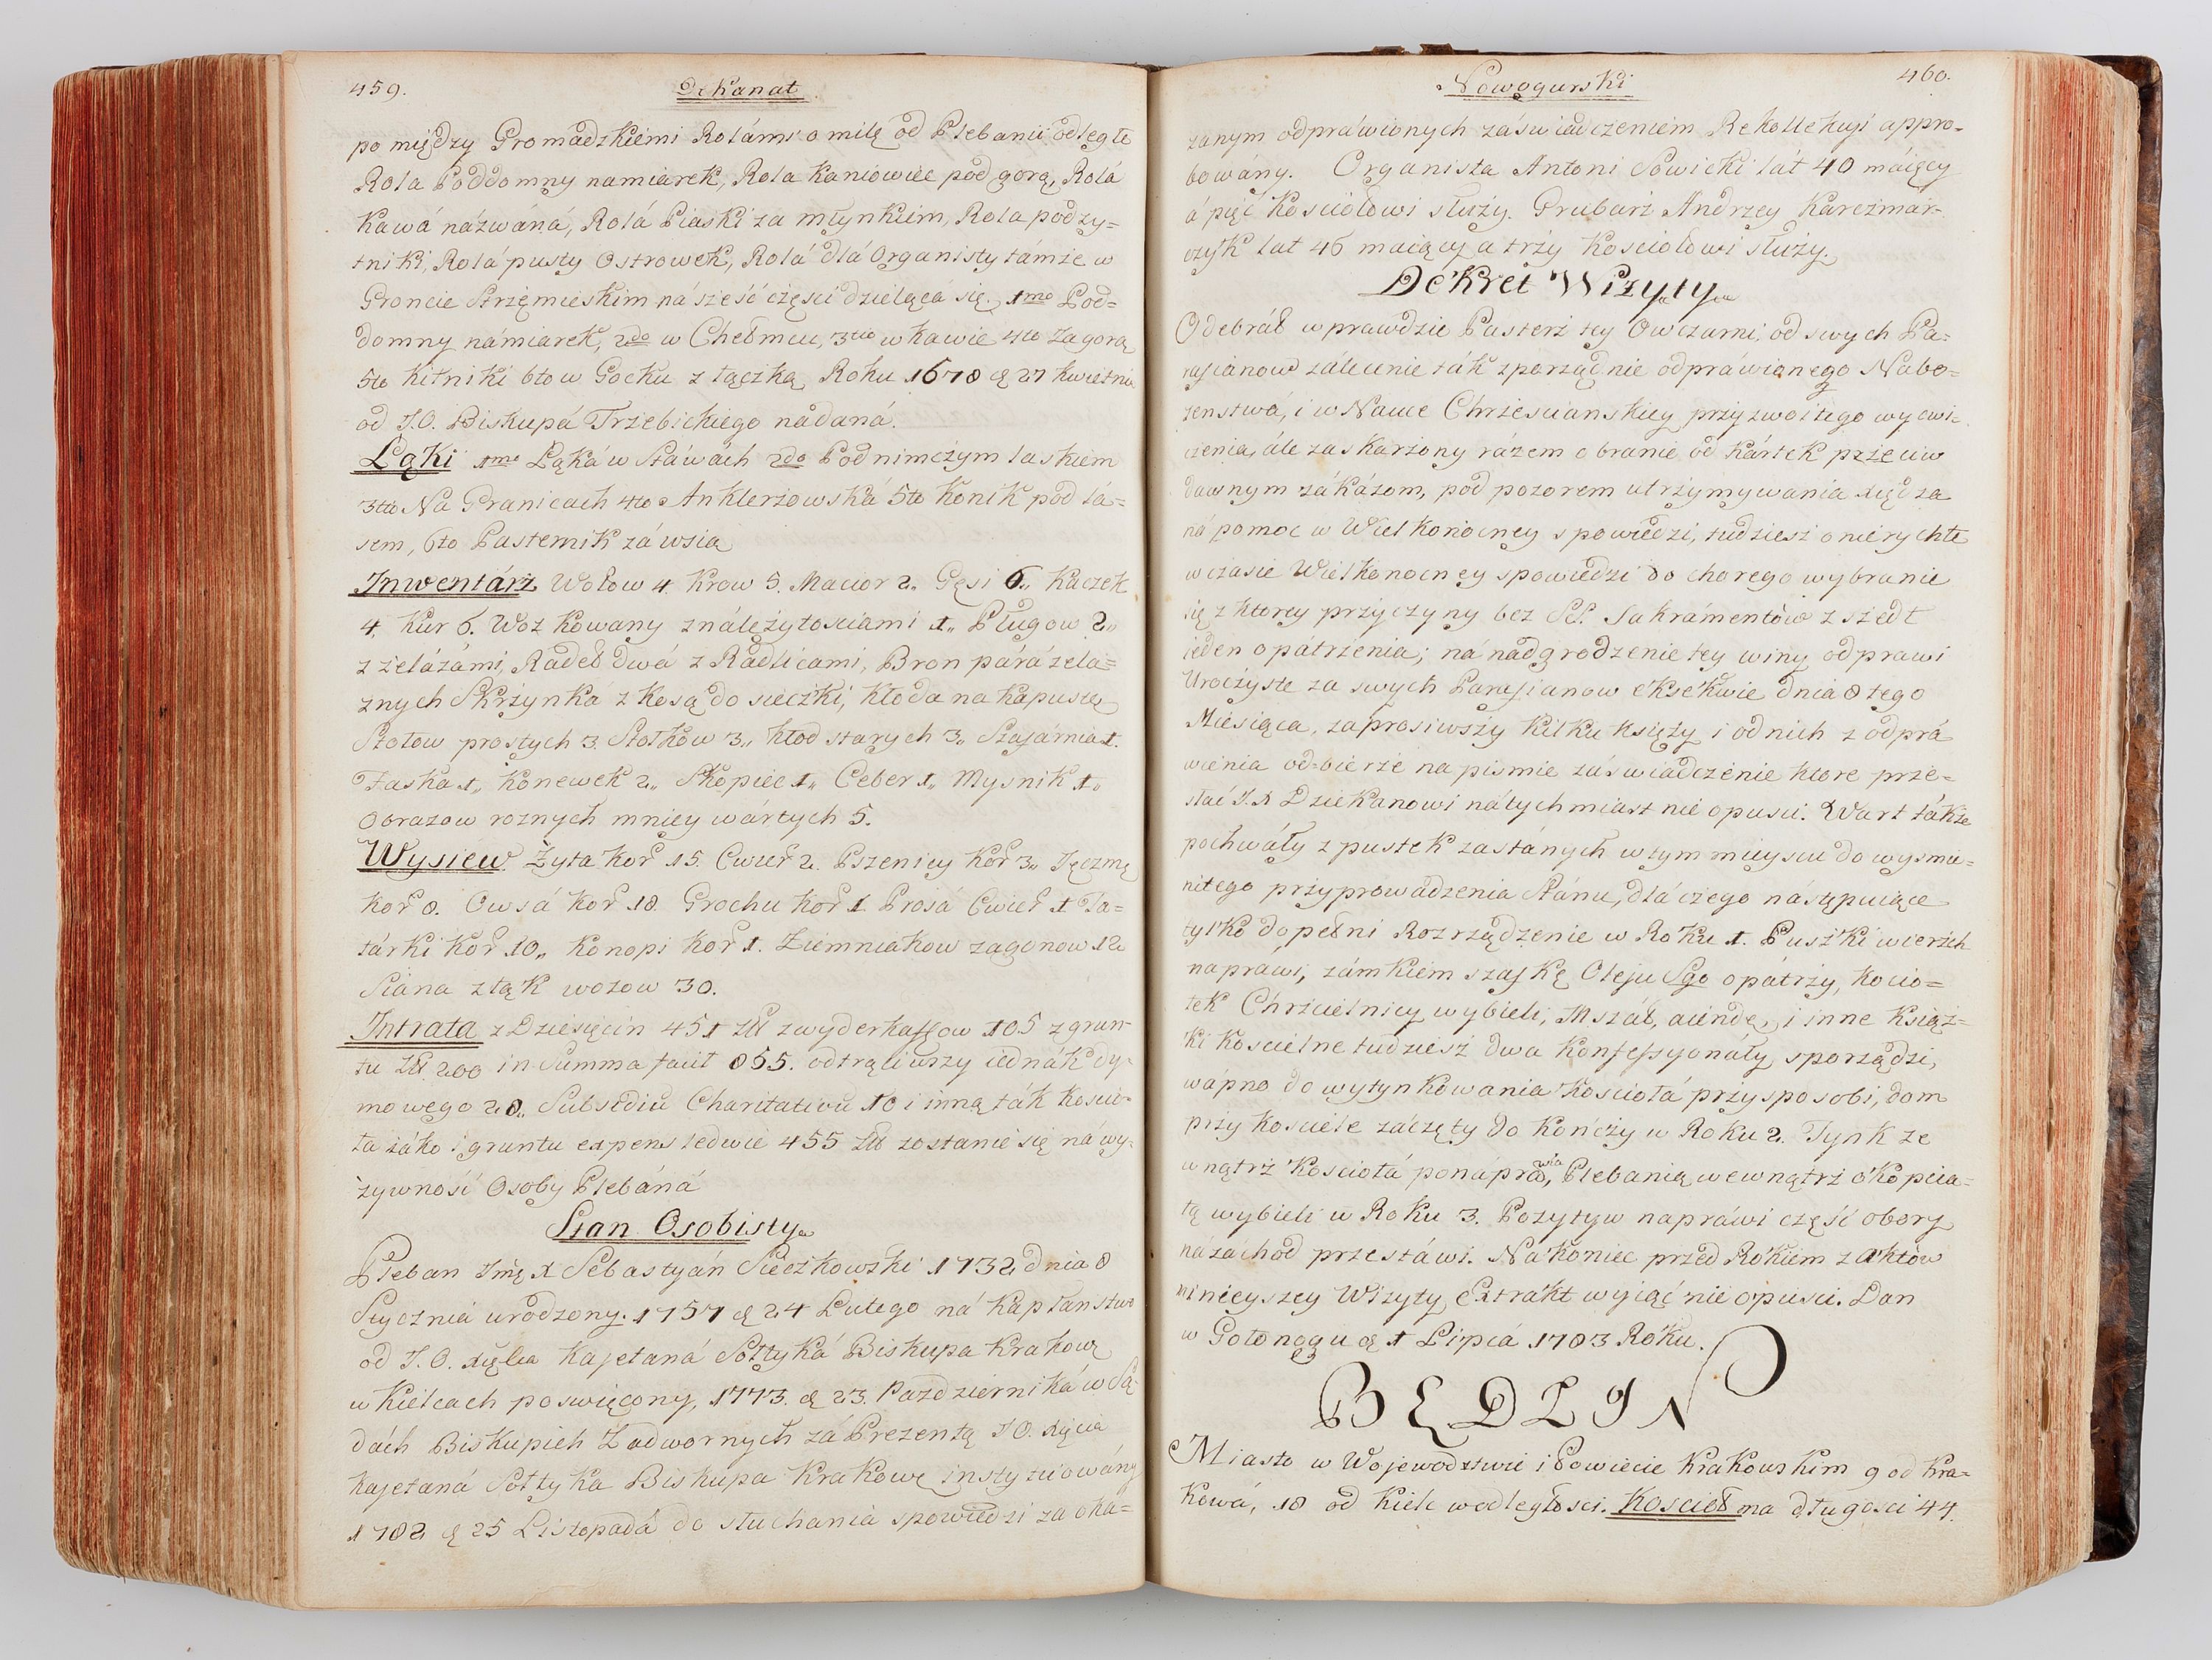 459.
Dekanat
po między Gromadzkiemi Rolámi o milę od Plebanii odległe
Rola Poddomny namiarek, Rola Kaniowiec pod gorą, Rolá
Kawá názwáná, Rolá Piaski za młynkiem, Rola podzy=
tniki, Rolá pusty Ostrowek, Rolá dlá Organisty támże w
Groncie Strzęmieskim ná sześć części dzieląca się. 1mo Pod=
domny námiarek, 2do w Chełmcu, 3tio w kawie 4to Zagorą
5to Kitniki 6to w Gocku z łączką Roku 1678 d 27 kwietnia
od J.O. Biskupá Trzebickiego nádaná.
Łąki 1mo Łąká w Stáwách 2do Podnimczym laskiem
3tio Na Granicach 4to Anklerzowská 5to Konik pod lá=
sem, 6to Pasternik zá wsią
Jnwentárż Wołow 4. Krow 5. Macior 2„ Gęsi 6„ Kaczek
4. Kur 6. Woz Kowany z nálężytosciami 1„ Pługow 2„
z żelázámi, Radeł dwá z Radlicami, Bron párá zela=
znych Skrżynká z Kosą do sieczki, kłoda na kapustę
Stołow prostych 3. Stołków 3„ kłod starych 3„ Szafárnia 1.
Faska 1„ Konewek 2„ Skopiec 1„ Ceber 1„ Mysnik 1„
Obrazow roznych mniey wártych 5.
Wysiew Żyta Kor 15. Cwier 2. Pszenicy Kor 3„ Jęczmę
Kor 8. Owsá Kor 18. Grochu Kor 1 Prosá Cwier 1 Ta=
tárki Kor 10„ Konopi Kor 1. Ziemniakow zagonow 12
Siána z łąk wozow 30.
Jntrata z Dziesięcin 451 Zł z wyderkaffow 105 z grun=
tu Zł 200 in Summa facit 855. odtrąciwszy iednák dy=
mowego 28„ Subsidiu Charitativu 18 i inną ták kościo=
ła iáko i gruntu expens ledwie 455 Zł zostanie się ná wy=
żywność Osoby Plebáná
Stan Osobisty
Pleban Jmę X Sebastyán Sieczkowski 1732 dnia 8
Stycznia urodzony. 1757 d 24 Lutego ná kapłanstwo
od J.O. Xięcia Kajetaná Sołtyká Biskupa Krakowę
w Kielcach poswięcony, 1773. d 23. Pazdzierniká w Są=
dách Biskupich Zadwornych zá Prezentą J O. Xięcia
Kajetaná Sołtyka Biskupa Krakowę instytuiowány
1782 d 25 Listopadá do słuchania spowiedzi za oka=
Nowogurski
460.
zanym odpráwionych záswiadczeniem Rekollekcyi appro=
bowány. Organista Antoni Sowicki lát 40 máiący
á pięć Kosciołowi służy. Grubarz Andrzey Karczmar=
czyk lat 46 maiący a trży Kosciołowi służy.
Dekret Wizyty
Odebráł wprawdzie Pasterż tey Owczarni, od swych Pa=
rafianow zálecenie ták zporządnie odpráwionego Nabo=
zenstwá, i w Nauce Chrżescianskiey przyzwoitego wycwi=
czenia, ále zaskarżony rázem o branie od Kártek przeciw
dawnym zákázom, pod pozorem utrżymywania Xiędza
ná pomoc w Wielkonocney spowiedzi, tudziesz o nierychłe
w czasie Wielkonocney spowiedzi do chorego wybranie
się z ktorey przyczyny bez SS. Sakrámentów zszedł
ieden opátrżenia; ná nádgrodzenie tey winy odprawi
Uroczyste za swych Parafianow Eksekwie dnia 8 tego
Miesiąca, zaprosiwszy kilku księży i od nich z odprá
wienia od=bierże na pismie záswiadczenie ktore prze=
słać J. X Dziekanowi nátychmiast nie opusci. Wart tákże
pochwáły z pustek zastányсh w tym mieyscu do wysmie=
nitego przyprowádzenia Stánu, dlá czego następuiące
tylko dopełni Rozrządzenie w Roku 1. Puszki wierzch
napráwi, zámkiem szafkę Oleju Sgo opátrży, kocio=
łek Chrżcielnicy wybieli, Mszáł, aiendę, i inne Książ=
ki Koscielne tudziesz dwa Konfessyonáły sporządzi,
wápno do wytynkowania Kosciołá przysposobi, dom
przy kosciele záczęty do kończy w Roku 2. Tynk ze
wnątrż Kosciołá ponápráwia, Plebanią wewnątrż okopcia=
łą wybieli w Roku 3. Pozytyw napráwi część obory
ná záchod przestáwi. Nakoniec przed Rokiem z Aktów
ninieyszey Wizyty Extrakt wyiąć nie opusci. Dan
w Gołonogu d 1 Lipcá 1783 Roku.
BĘDZIN
Miasto w Wojewodztwie i Powiecie Krakowskim 9 od Kra=
Kowá, 18 od Kielc w odległosci. Koscioł ma długosci 44.